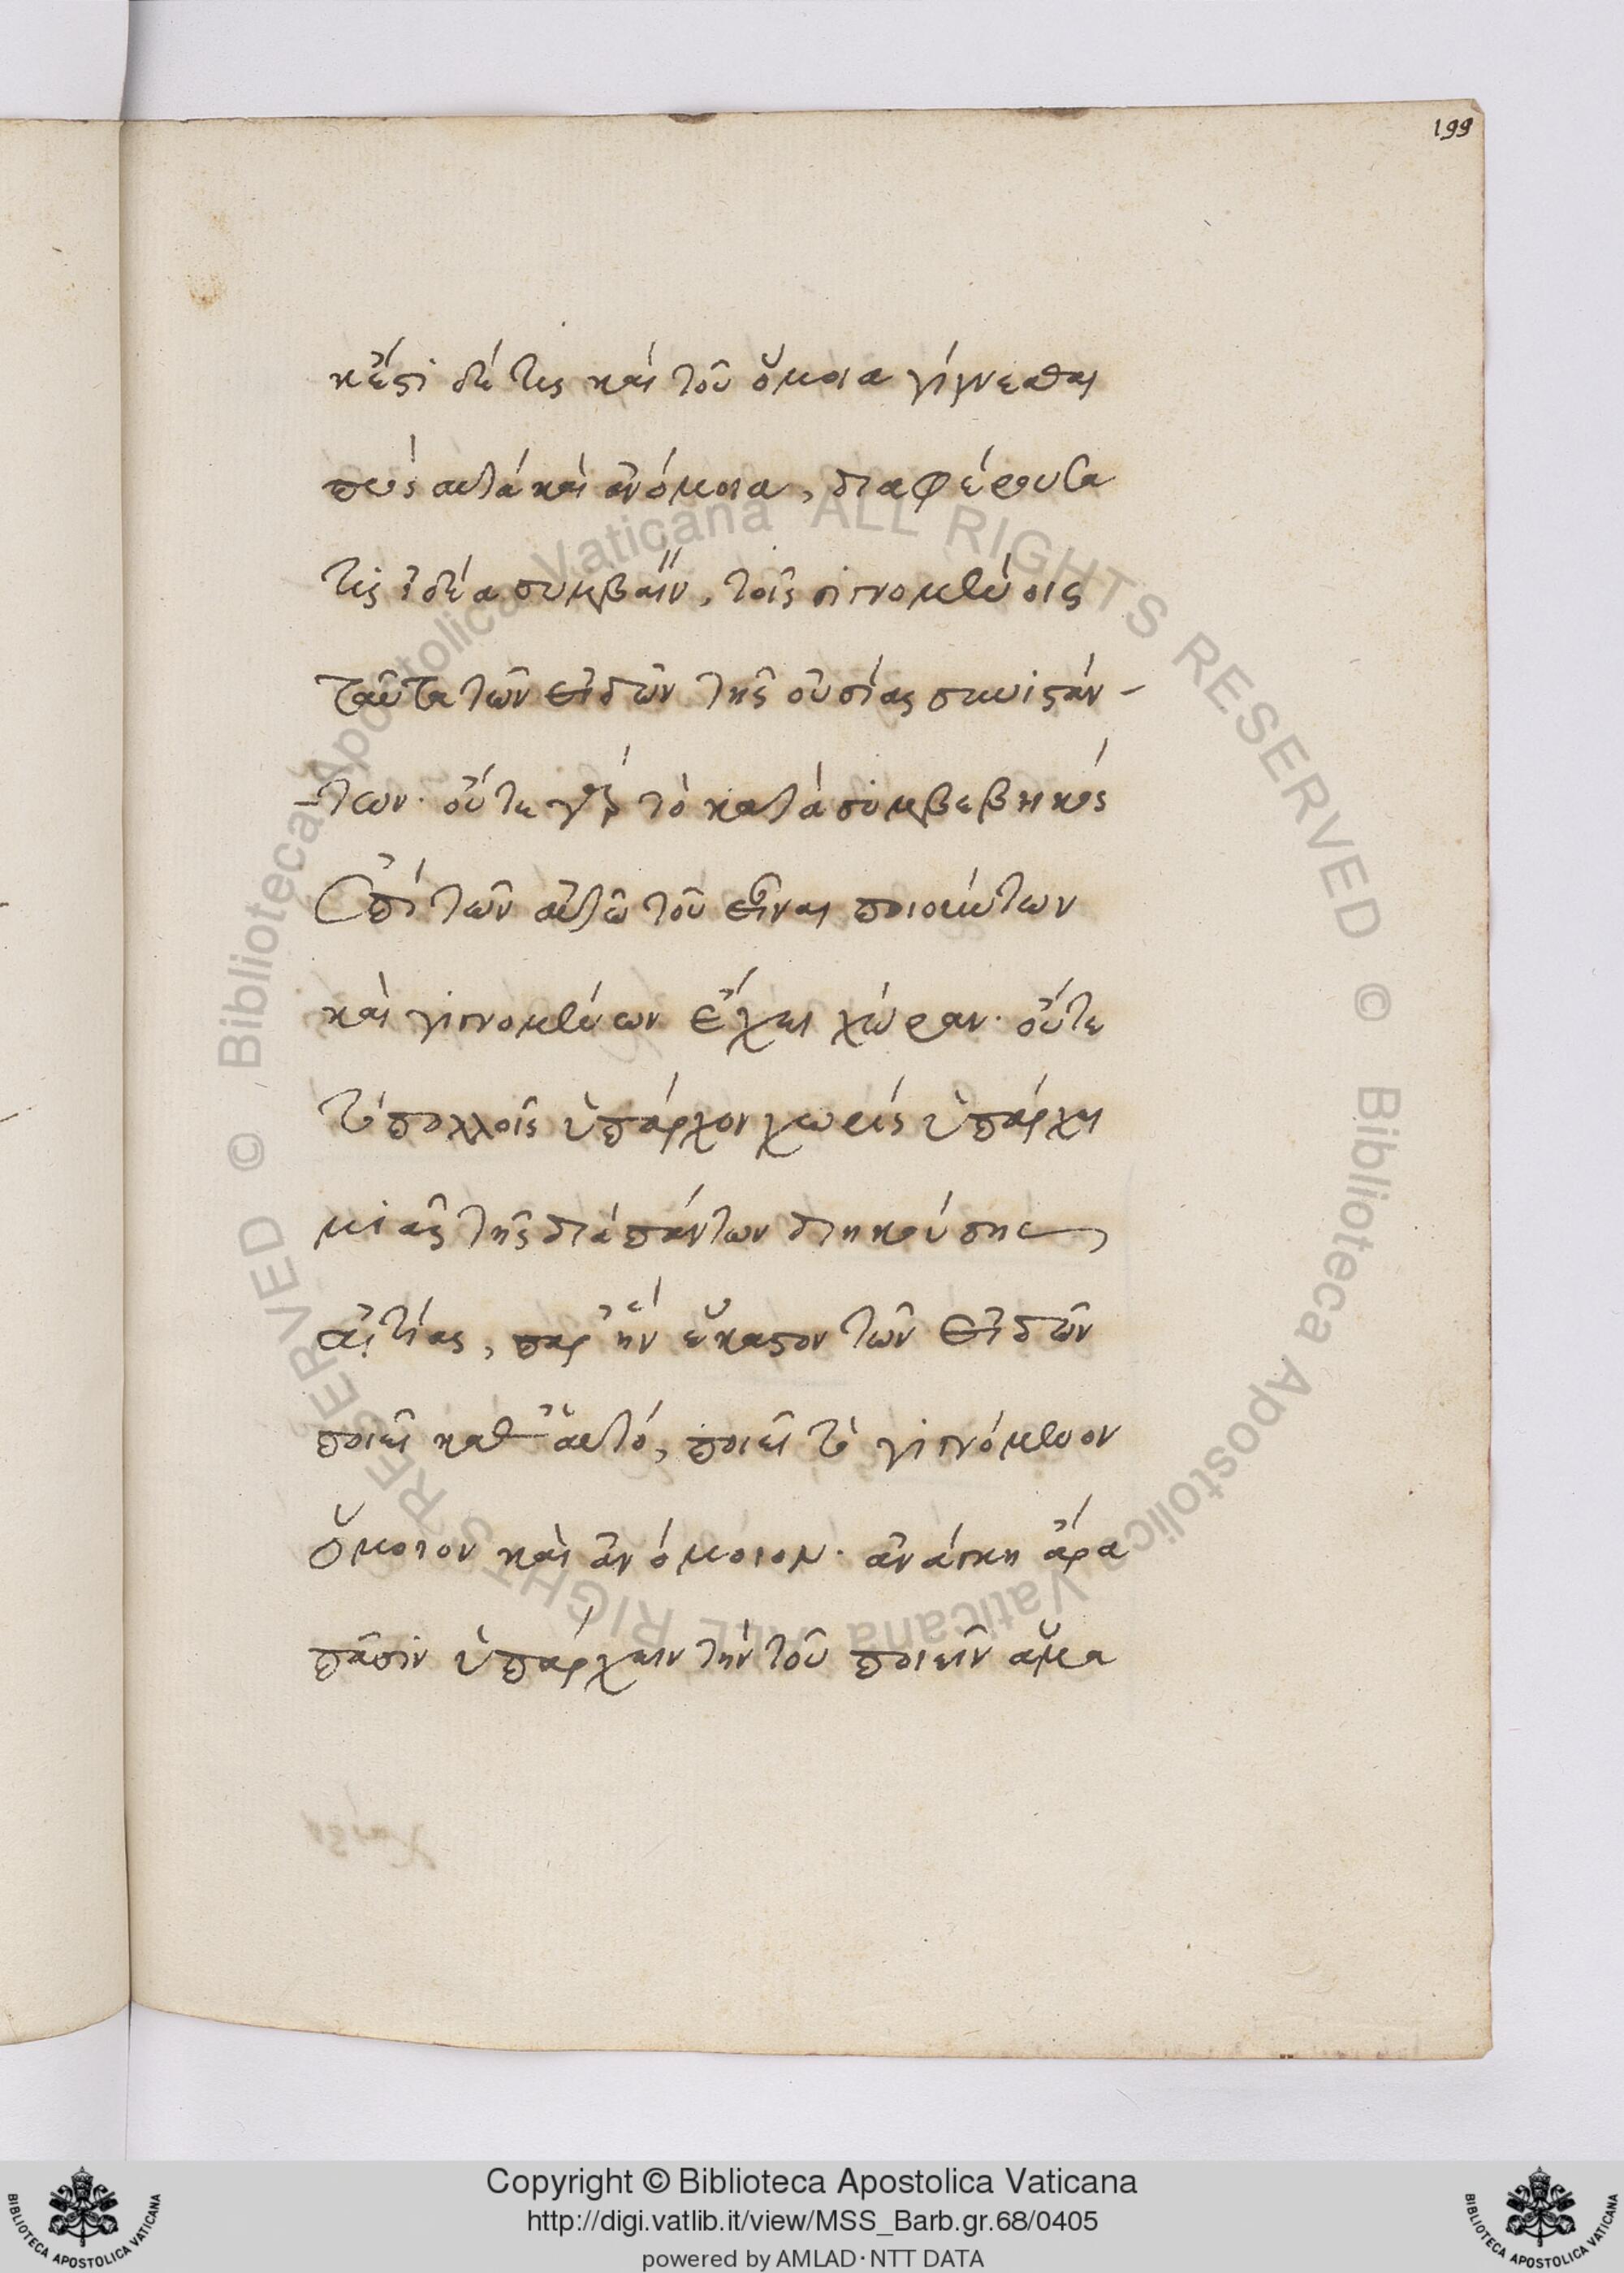 199
κἄστι δή τις καὶ τοῦ ὅμοια γίγνεσθαι
πως αὐτὰ καὶ ἀνόμοια, διαφέρουσα
τις ἰδέα συμβαίν, τοῖς γιγνομένοις
ταῦτα τῶν εἰδῶν τῆς οὐσίας συνιστάν-
-των· οὔτε γὰρ τὸ κατὰ συμβεβηκὸς
ἐπὶ τῶν αὐτῶ τοῦ εἶναι ποιούντων
καὶ γιγνομένων ἔχει χώραν· οὔτε
τὸ πολλοῖς ὑπάρχον χωρὶς ὑπάρχει
μιᾶς τῆς διὰ πάντων διηκούσης
αἰτίας, παρ' ἣν ἕκαστον τῶν εἰδῶν
ποιεῖ καθ' αὑτό, ποιεῖ τὸ γιγνόμενον
ὅμοιον καὶ ἀνόμοιον· ἀνάγκη ἄρα
πᾶσιν ὑπάρχειν τὴν τοῦ ποιεῖν ἅμα
© Biblioteca Apostolica Vaticana ALL RIGHTS RESERVED © Biblioteca Apostolica Vaticana ALL RIGHTS RESERVED
Copyright © Biblioteca Apostolica Vaticana
http://digi.vatlib.it/view/MSS_Barb.gr.68/0405
powered by AMLAD·NTT DATA
BIBLIOTECA APOSTOLICA VATICANA
BIBLIOTECA APOSTOLICA VATICANA